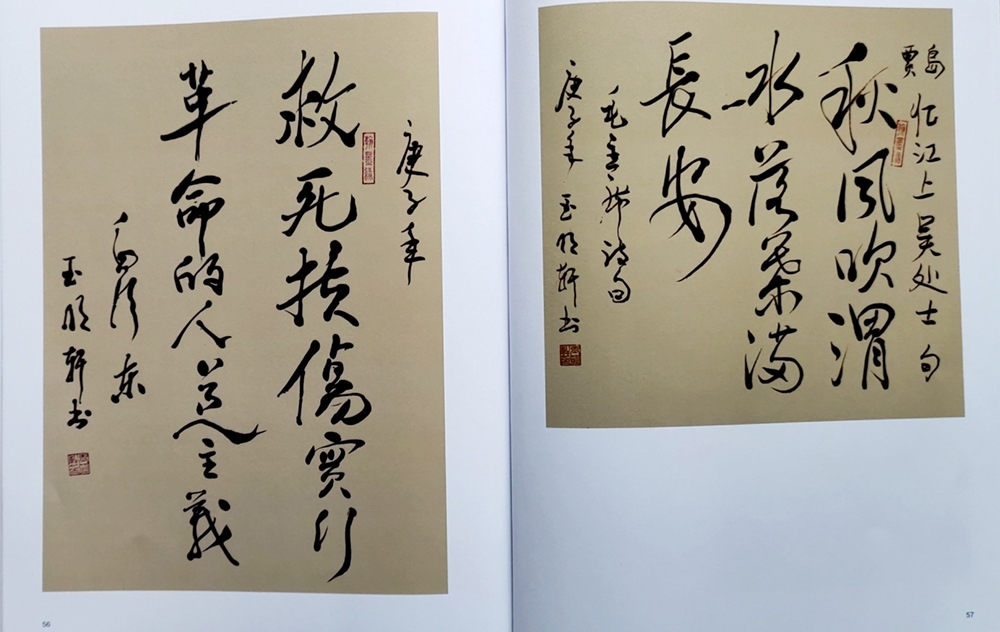 庚子年
救死扶傷實行
革命的人道主義
毛澤东
玉明轩书
56
賈島
忆江上吴处士句
秋风吹渭
水落葉满
長安
毛主席诗句
庚子年 玉明轩书
57